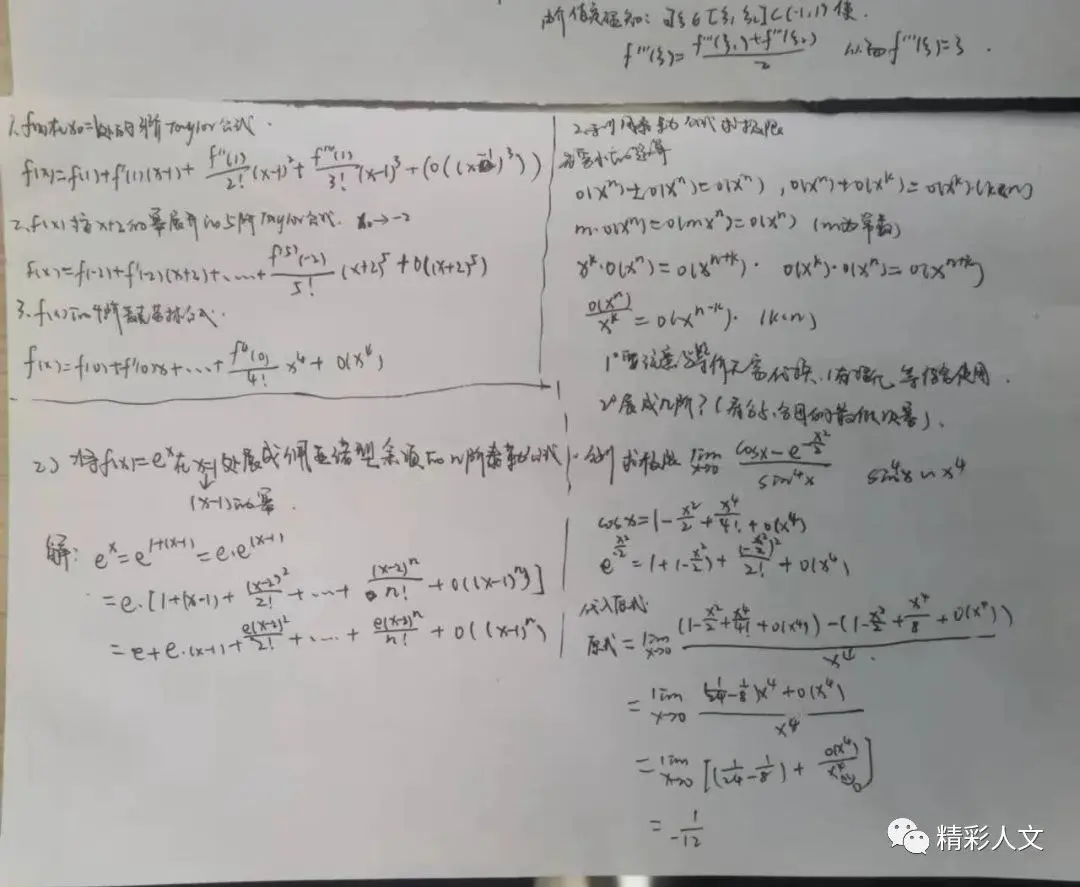 介值定理知：∃ξ∈[ξ₁,ξ₂]⊂(-1,1)使.
f'''(ξ)=\frac{f'''(ξ₁)+f'''(ξ₂)}{2} f'''(ξ)=3.
1. f(x)在x₀=1处的3阶Taylor公式.
f(x)=f(1)+f'(1)(x-1)+\frac{f''(1)}{2!}(x-1)²+\frac{f'''(1)}{3!}(x-1)³+(o((x-1)³))
2. f(x)按x+2的幂展开的5阶Taylor公式. x₀→-2
f(x)=f(-2)+f'(-2)(x+2)+……+\frac{f^{(5)}(-2)}{5!}(x+2)⁵+o((x+2)⁵)
3. f(x)的4阶麦克劳林公式.
f(x)=f(0)+f'(0)x+……+\frac{f⁴(0)}{4!}x⁴+o(x⁴)
2) 将f(x)=eˣ在x=1处展成佩亚诺型余项的n阶泰勒公式.
(x-1)的幂.
解：eˣ=e^{1+(x-1)}=e·e^{(x-1)}
=e·[1+(x-1)+\frac{(x-2)²}{2!}+……+\frac{(x-2)ⁿ}{n!}+o((x-1)ⁿ)]
=e+e·(x-1)+\frac{e(x-2)²}{2!}+……+\frac{e(x-2)ⁿ}{n!}+o((x-1)ⁿ)
2. 利用泰勒公式求极限
高阶无穷小的运算
o(xⁿ)±o(xⁿ)=o(xⁿ), o(xⁿ)+o(xᵏ)=o(xᵏ)(k<n)
m·o(xⁿ)=o(mxⁿ)=o(xⁿ) (m为常数)
xᵏ·o(xⁿ)=o(x^{n+k})· o(xᵏ)·o(xⁿ)=o(x^{n+k})
\frac{o(xⁿ)}{xᵏ}=o(x^{n-k})· (k<n)
1° 要注意与等价无穷小代换 使用.
2° 展成几阶？(看分子、分母的最低次幂).
例 求极限 \lim_{x→0}\frac{cosx-e^{-\frac{x²}{2}}}{sin⁴x} sin⁴x~x⁴
cosx=1-\frac{x²}{2}+\frac{x⁴}{4!}+o(x⁴)
e^{-\frac{x²}{2}}=1+(-\frac{x²}{2})+\frac{(-\frac{x²}{2})²}{2!}+o(x⁴)
代入原式
原式=\lim_{x→0}\frac{(1-\frac{x²}{2}+\frac{x⁴}{4!}+o(x⁴))-(1-\frac{x²}{2}+\frac{x⁴}{8}+o(x⁴))}{x⁴}.
=\lim_{x→0}\frac{(\frac{1}{24}-\frac{1}{8})x⁴+o(x⁴)}{x⁴}
=\lim_{x→0}[(\frac{1}{24}-\frac{1}{8})+\frac{o(x⁴)}{x⁴}]
=\frac{1}{-12}
精彩人文